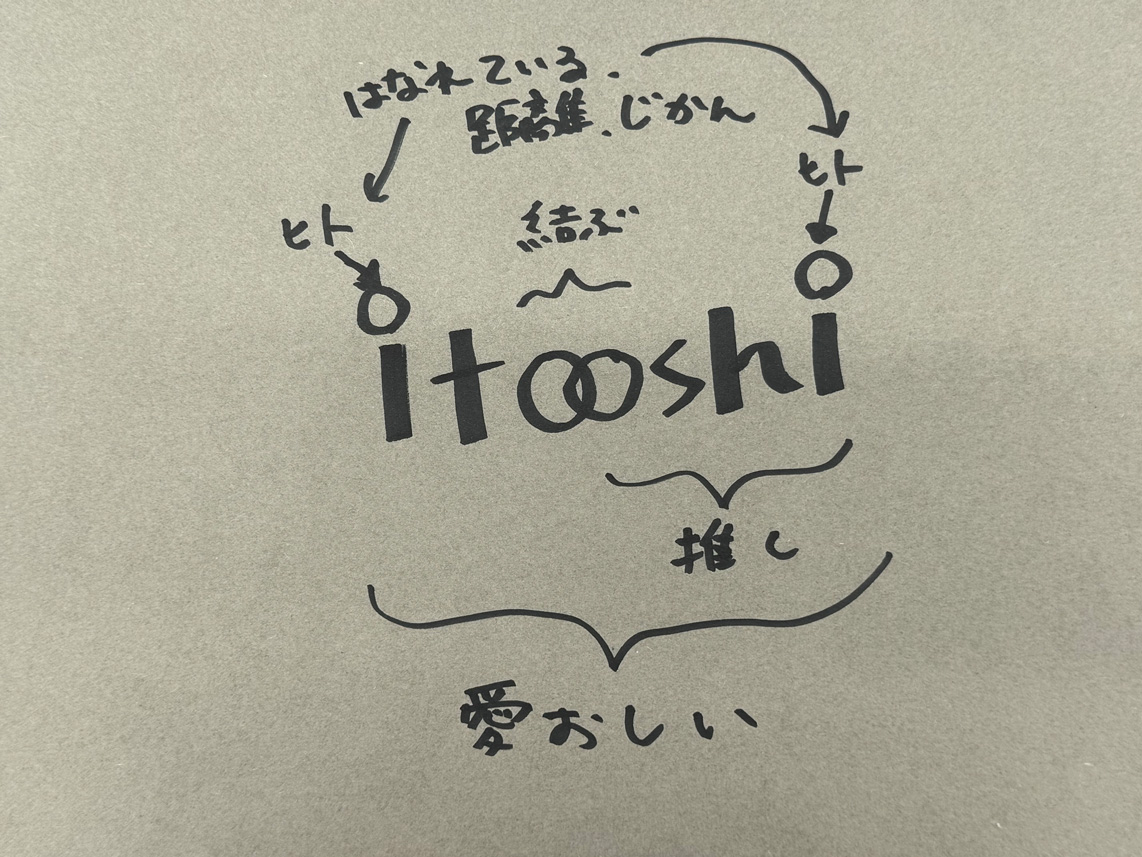 はなれている.
距離.じかん
ヒト
ヒト
結ぶ
itooshi
推し
愛おしい